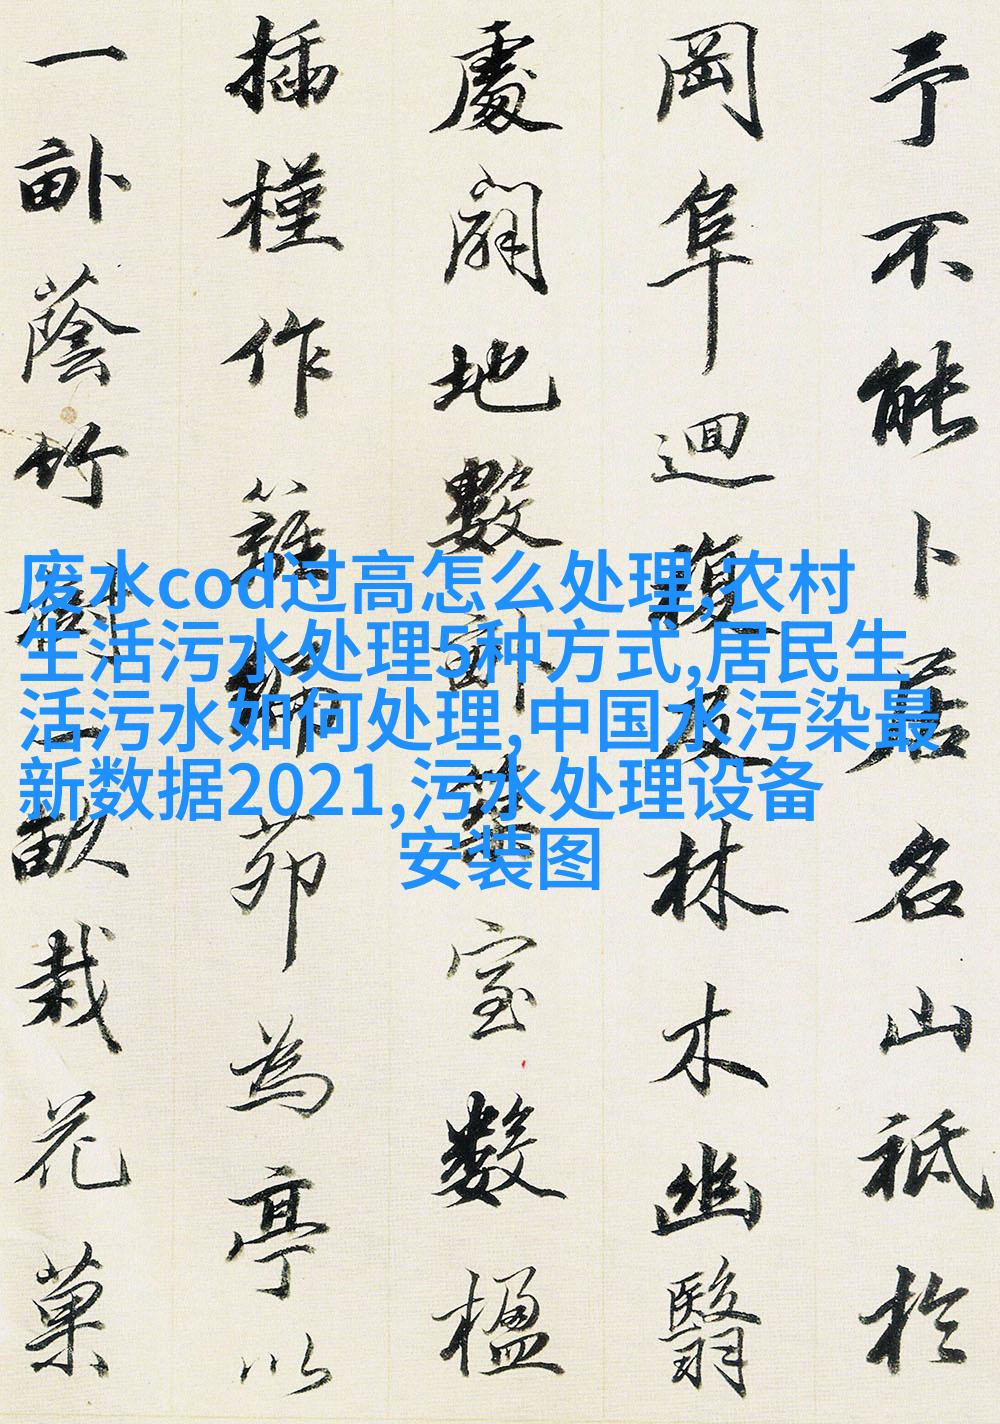 予不能卜居名山祗於
岡阜迴複及林木幽翳
處闢地數畝築室數楹
插槿作籬編茆為亭以
一畝蔭竹樹一畝栽花菓
废水cod过高怎么处理,农村
生活污水处理5种方式,居民生
活污水如何处理,中国水污染最
新数据2021,污水处理设备
安装图